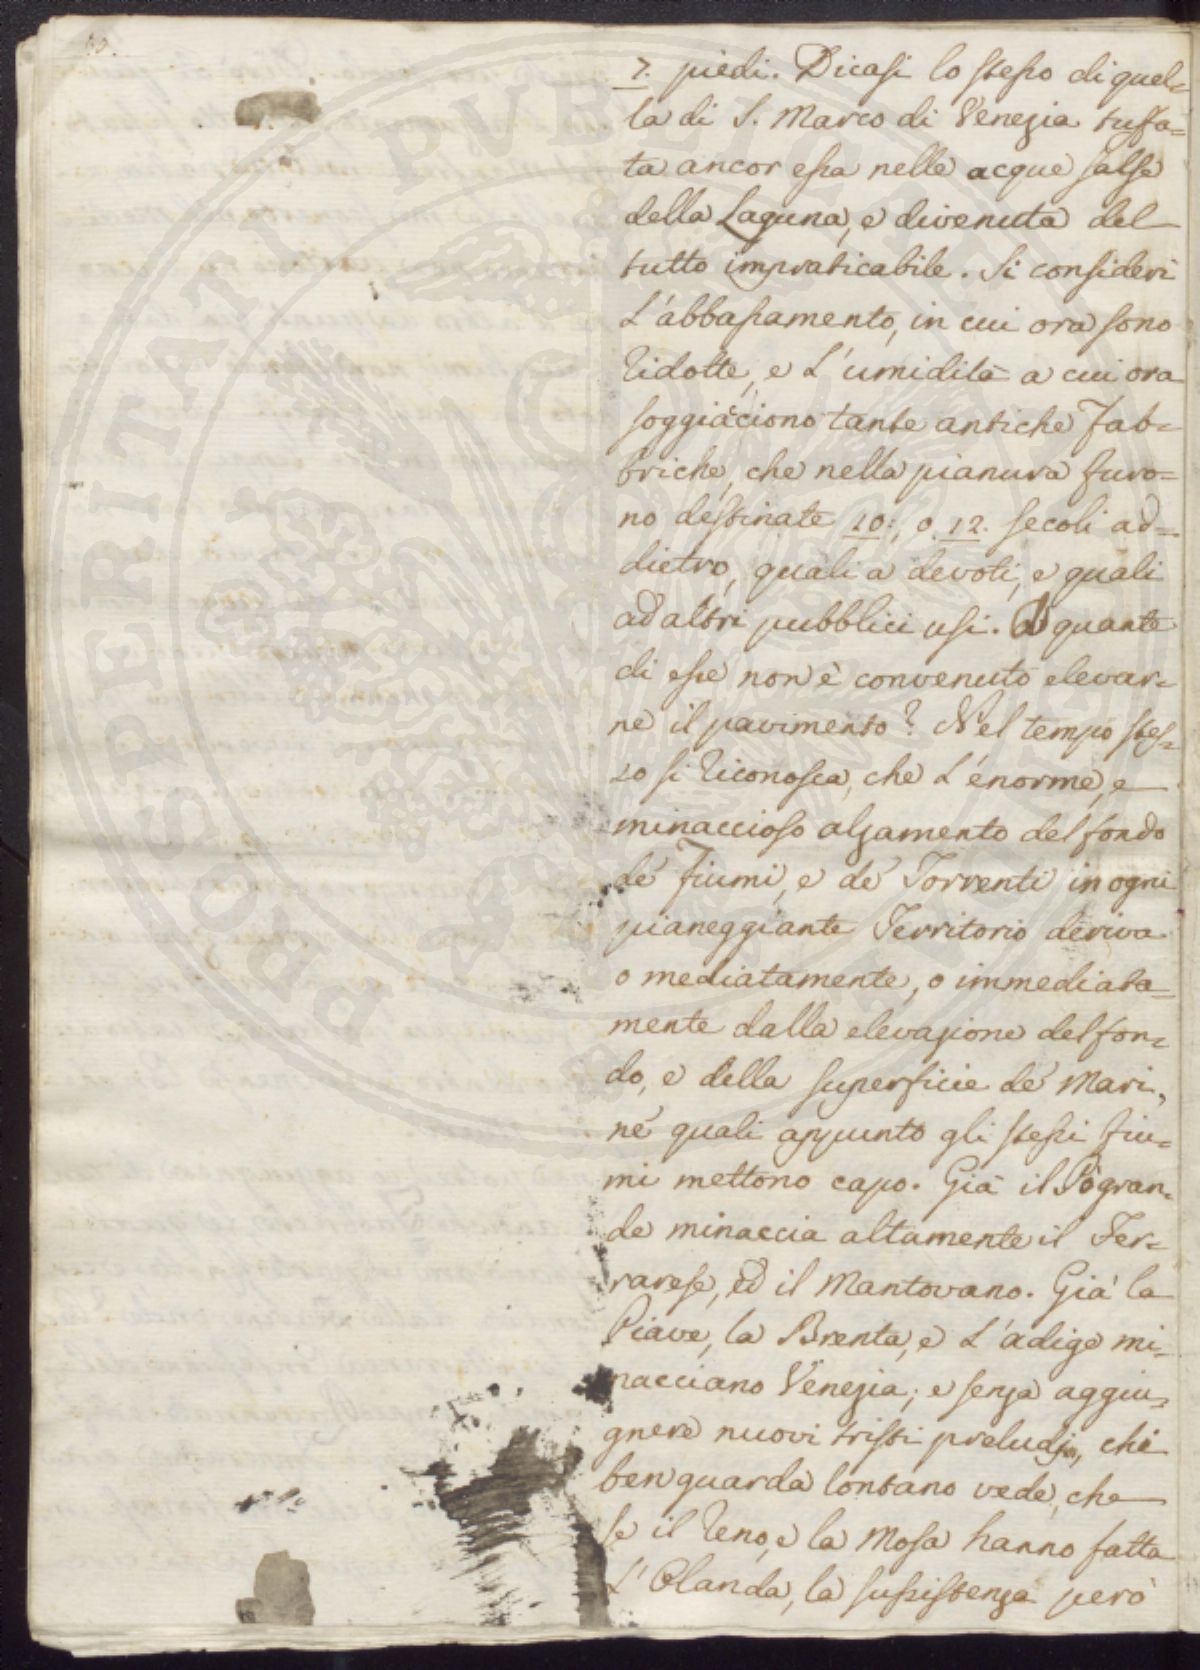 60.
7. piedi. Dicasi lo stesso di quel=
la di S. Marco di Venezia tuffa=
ta ancor essa nelle acque salse
della Laguna, e divenuta del
tutto impraticabile. Si consideri
L'abbassamento, in cui ora sono
ridotte, e L'umidità a cui ora
soggiaciono tante antiche Fab=
briche, che nella pianura furo=
no destinate 10:, o 12. secoli ad=
dietro, quali a devoti, e quali
ad altri pubblici usi. A quante
di esse non è convenuto elevar=
ne il pavimento? Nel tempo stes=
so si riconosca, che L'enorme, e
minaccioso alzamento del fondo
de' Fiumi, e de' Torrenti in ogni
pianeggiante Territorio deriva
o mediatamente, o immediata=
mente dalla elevazione del fon=
do, e della superficie de' Mari,
ne' quali appunto gli stessi fiu=
mi mettono capo. Già il Pò gran=
de minaccia altamente il Fer=
rarese, ed il Mantovano. Già la
Piave, la Brenta, e L'adige mi=
nacciano Venezia; e senza aggiu=
gnere nuovi tristi preludj, chi
ben guarda lontano vede, che
se il Reno, e la Mosa hanno fatta
L'Olanda, la sussistenza però
PROSPERITATI PUBLICAE